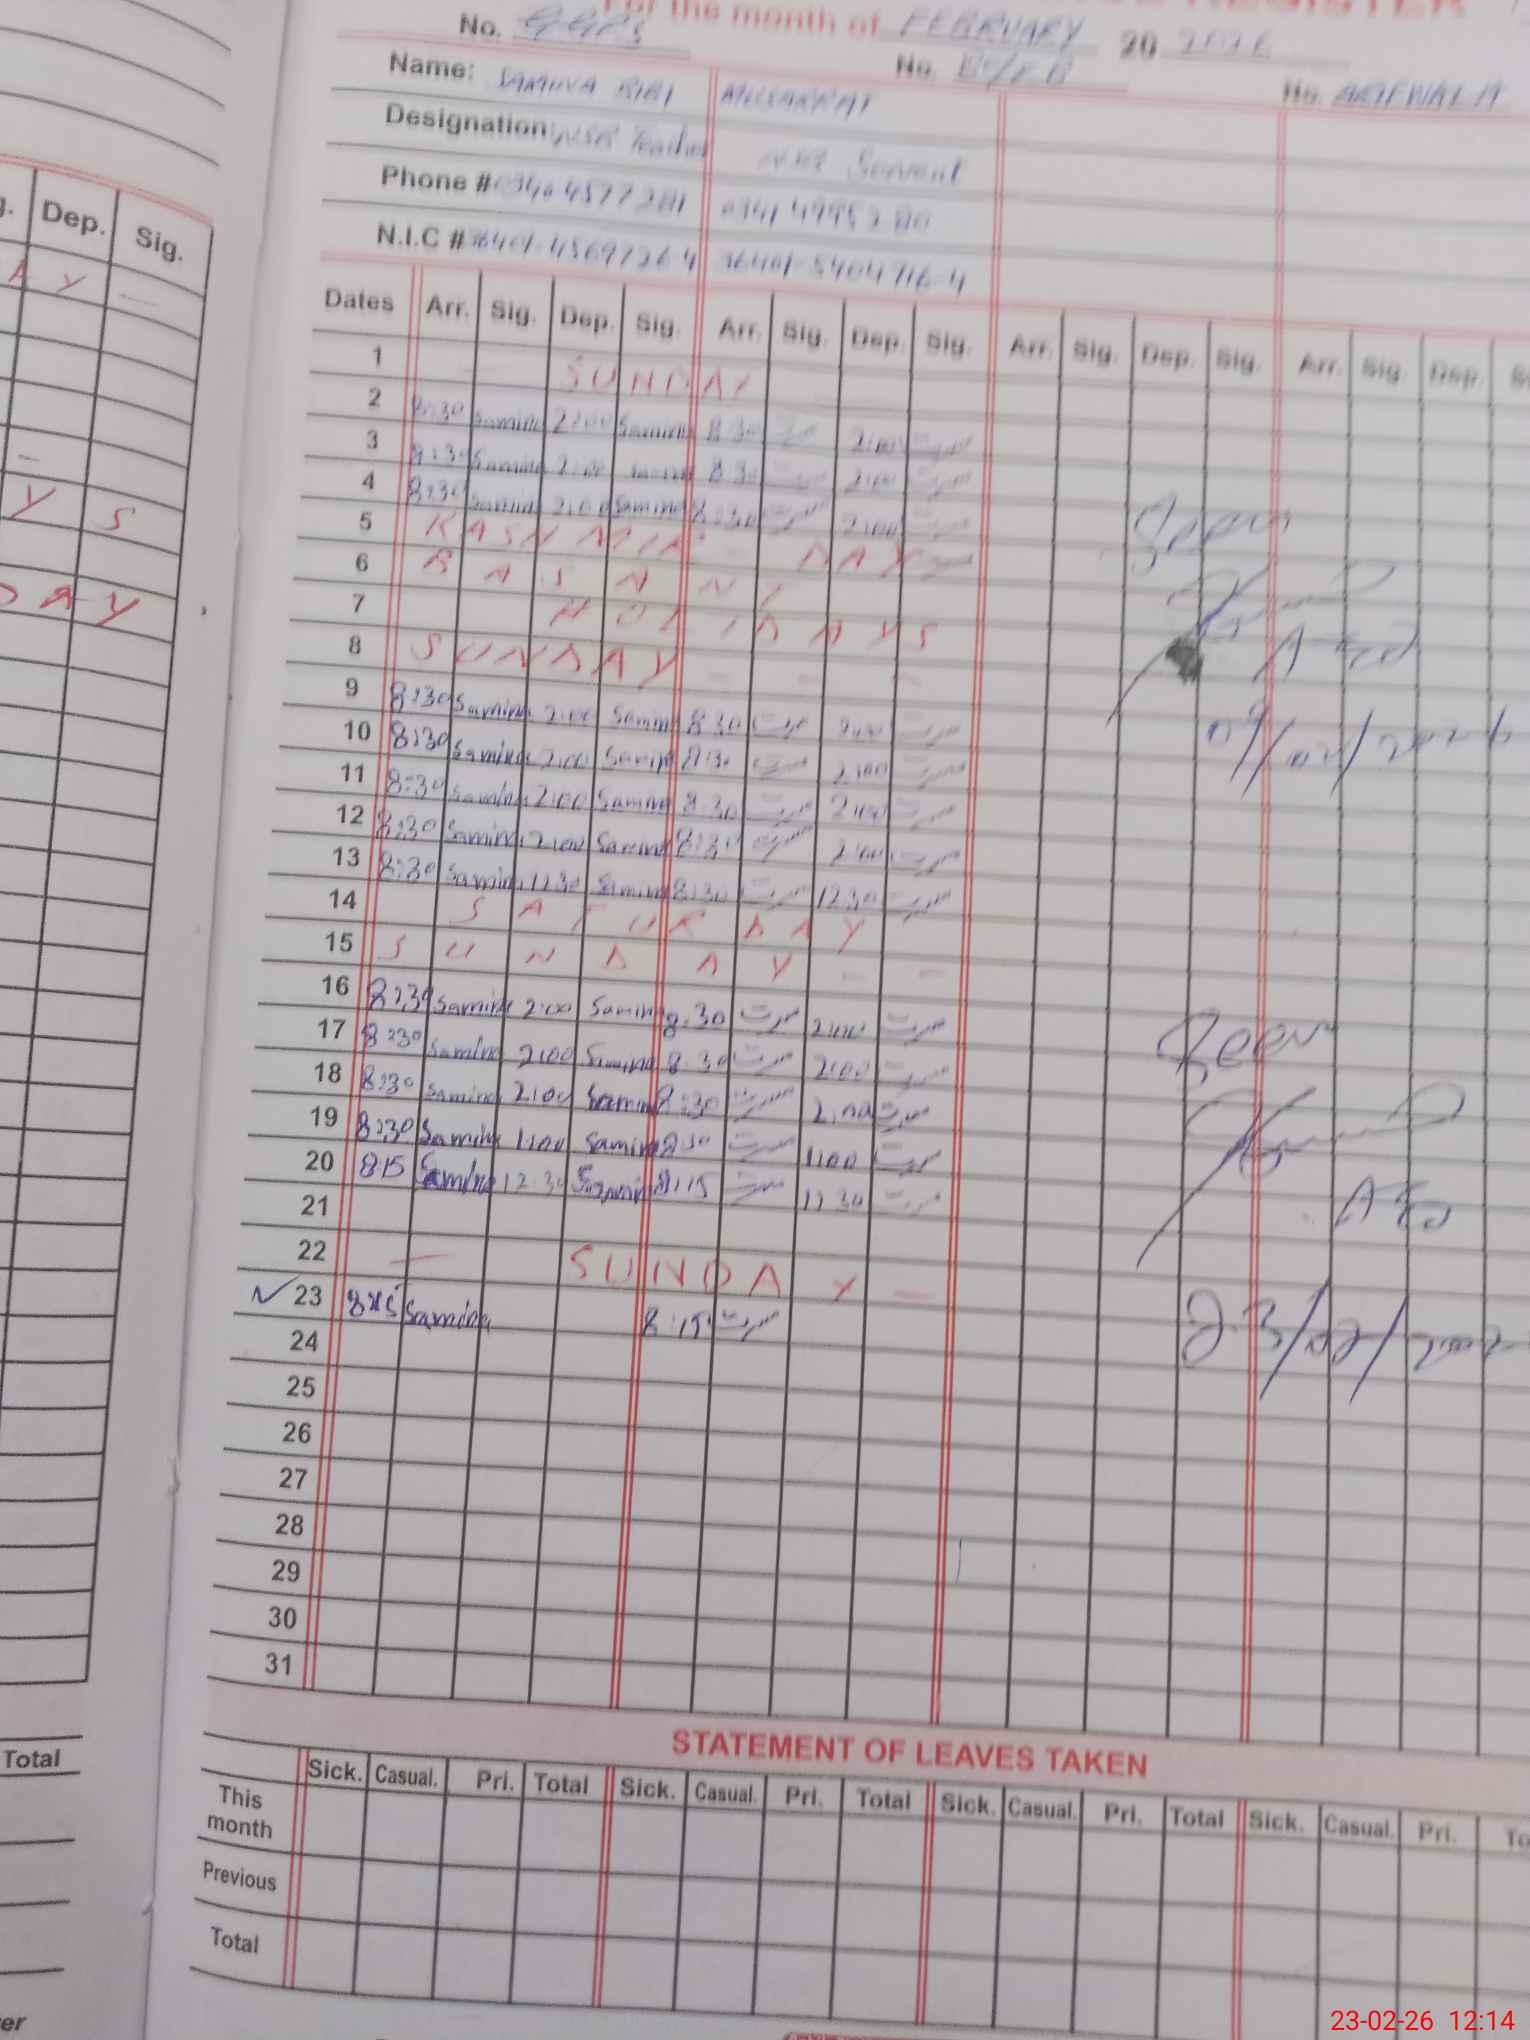 For the month of FEBRUARY 20 2026
No. GGPS No. No. ARIFWALA
Name: SAMINA BIBI MUSARRAT
Designation: NSB Teacher NSB Servent
Phone #
N.I.C #
Dates Arr. Sig. Dep. Sig. Arr. Sig. Dep. Sig. Arr. Sig. Dep. Sig. Arr. Sig. Dep.
1 SUNDAY
2 8:30 Samina 2:00 Samina 8:30 2:00
3 8:30 Samina 2:00 Samina 8:30 2:00
4 8:30 Samina 2:00 Samina 8:30 2:00
5 KASHMIR DAY
6
7 HOLIDAYS
8 SUNDAY
9 8:30 Samina 2:00 Samina 8:30 2:00
10 8:30 Samina 2:00 Samina 8:30 2:00
11 8:30 Samina 2:00 Samina 8:30 2:00
12 8:30 Samina 2:00 Samina 8:30 2:00
13 8:30 Samina 12:30 Samina 8:30 12:30
14 SATURDAY
15 SUNDAY
16 8:30 Samina 2:00 Samina 8:30 2:00
17 8:30 Samina 2:00 Samina 8:30 2:00
18 8:30 Samina 2:00 Samina 8:30 2:00
19 8:30 Samina 1:00 Samina 8:30 1:00
20 8:15 Samina 12:30 Samina 8:15 12:30
21
22 SUNDAY
23 8:15 Samina 8:15
24
25
26
27
28
29
30
31
Seen
AEO
09/02/2026
Seen
AEO
23/02/202
STATEMENT OF LEAVES TAKEN
Sick. Casual. Pri. Total Sick. Casual. Pri. Total Sick. Casual. Pri. Total Sick. Casual. Pri. To
This month
Previous
Total
Dep. Sig.
A Y
Y S
DAY
Total
er
23-02-26 12:14